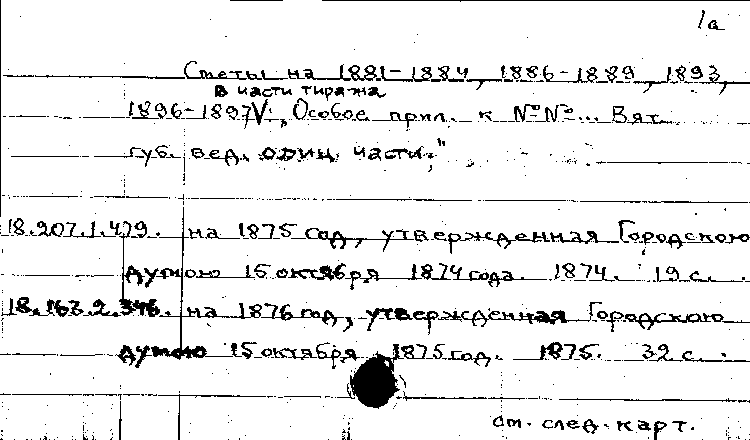 1а
Сметы на 1881-1884, 1886-1889, 1893,
в части тиража
1896-1897 V:, Особое прил. к №№... Вят.
губ. вед. один. части,"
18.207.1.479. на 1875 год, утвержденная Городскою
думою 15 октября 1874 года. 1874. 19 с.
18.163.2.346. на 1876 год, утвержденная Городскою
думою 15 октября 1875 год. 1875. 32 с.
см. след. карт.